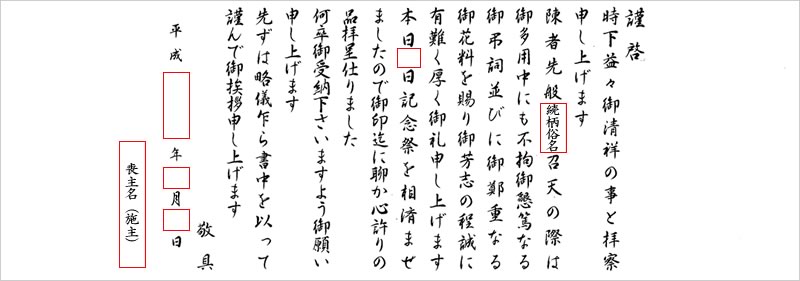 謹啓
時下益々御清祥の事と拝察
申し上げます
陳者先般続柄俗名召天の際は
御多用中にも不拘御懇篤なる
御弔詞並びに御鄭重なる
御花料を賜り御芳志の程誠に
有難く厚く御礼申し上げます
本日 日記念祭を相済ませ
ましたので御印迄に聊か心許りの
品拝呈仕りました
何卒御受納下さいますよう御願い
申し上げます
先ずは略儀乍ら書中を以って
謹んで御挨拶申し上げます
敬具
平成 年 月 日
喪主名(施主)